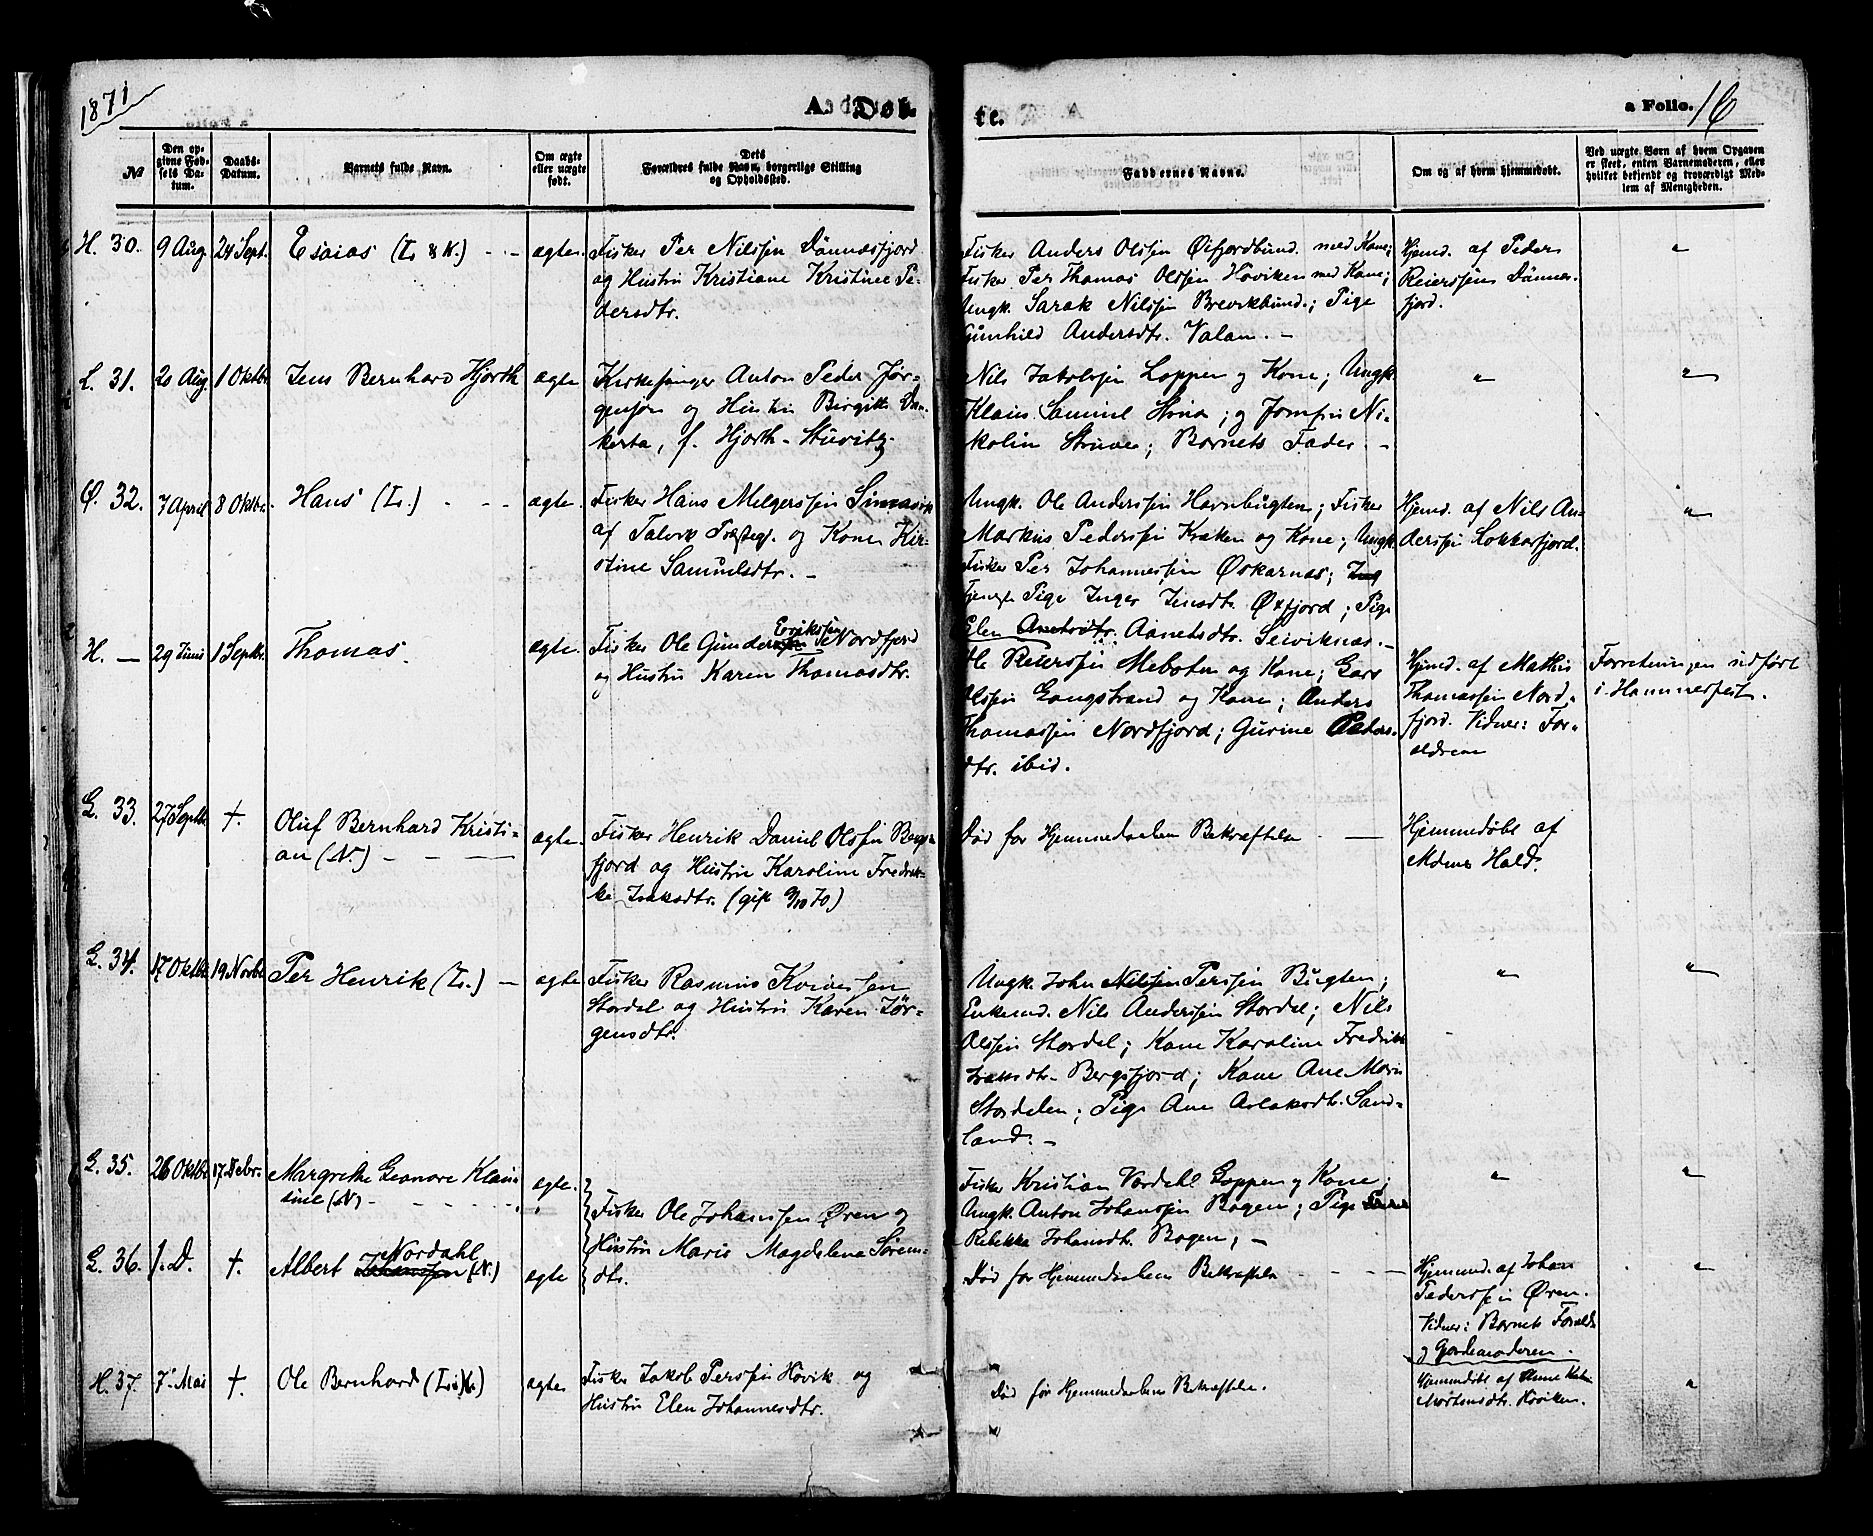 1871
Døb
te.
a Folio. 16
№
Den op-
givne Fød-
sels Da-
tum.
Daabs-
Datum.
Barnets fulde Navn.
Om ægte
eller uægte
født.
Dets
Forældres fulde Navn, borgerlige Stilling
og Opholdssted.
Faddernes Navne.
Om og af hvem hjemmedøbt.
Ved uægte Børn af hvem Opgaven
er skeet, enten Barnemoderen, eller
hvilket bekjendt og troværdigt Med-
lem af Menigheden.
H. 30. 9 Aug. 24 Sept. Esaias (L & K.) - - ægte.
Fisker Per Nilssen Dønnesfjord
og Hustru Kristiane Kristine Pe-
dersdtr.
Fisker Anders Olssen Øxfjordbund med Kone;
Fisker Per Thomas Olssen Haviken med Kone;
Ungk. Sarak Nilssen Brevikbund; Pige
Gunhild Andersdtr. Valan. -
Hjemd. af Peder
Reierssen Dønnes-
fjord.
"
L. 31. 20 Aug 1 Oktbr. Jens Bernhard Hjorth ægte
Kirkesanger Anton Peder Jør-
gensen og Hustru Birgitte Dan-
kerta, f. Hjorth-Stuvitz.
Nils Jakobsen Loppen og Kone; Ungk.
Klaus Samuel Struve; og Jomfru Ni-
kolin Struve; Barnets Fader. -
" "
Ø. 32. 7 April 8 Oktbr. Hans (L.) - - - ægte.
Fisker Hans Melgerssen Simavik
af Talvik Præstegj. og Kone Kir-
stine Samuelsdtr. -
Ungk. Ole Anderssen Havnbugten; Fisker
Markus Pederssen Kraken og Kone; Ungk.
Fisker Per Johannessen Øskarnes;
Tjenge Pige Inger Jensdtr. Øxfjord; Pige
Elen Aanetsdtr. Seiviknes. -
Hjemd. af Nils An-
derssen Lokkarfjord.
"
H. — 29 Juni 1 Septbr. Thomas. ægte.
Fisker Ole Gunder Erikssen Nordfjord
og Hustru Karen Thomasdtr.
Ole Reierssen Mebotn og Kone; Lars
Olssen Langstrand og Kone; Anders
Thomassen Nordfjord; Gurine Peders-
dtr. ibid.
Hjemd. af Mathis
Thomassen Nord-
fjord. Vidner: For-
ældrene
Forretningen udført
i Hammerfest.
L. 33. 27 Septbr. †. Oluf Bernhard Kristi-
an (N.) - - — ægte.
Fisker Henrik Daniel Olssen Bergs-
fjord og Hustru Karoline Fredrik-
ke Isaksdtr. (gift 9/10 70)
Død før Hjemmedaabens Bekræftelse - —
Hjemmedøbt af
Mons Hald.
L. 34. 17 Oktbr. 19 Novbr. Per Henrik (L.) — ægte
Fisker Rasmus
Stordal og Hustru Karen Jør-
gensdtr.
Ungk. John Nilssen Perssen Bugten;
Enkemd. Nils Anderssen Stordal; Nils
Olssen Stordal; Kone Karoline Fredrikke
Isaksdtr. Bergsfjord; Kone Ane Marie
Stordalen; Pige Ane Aslaksdtr. Sand-
land. -
" "
L. 35. 26 Oktbr. 17 Debr. Margrethe Leonore Klau-
sine (N.) - - - - - ægte.
Fisker Ole Johanssen Øren og
Hustru Marie Magdalena Sørens-
dtr.
Fisker Kristian Vordahl Loppen og Kone;
Ungk. Anton Johanssen Bogen; Pige
Rebekka Johansdtr. Bogen; -
" "
L. 36. s. D. †. Albert Johanssen Nordahl (N.) ægte
Død før Hjemmedaabens Bekræftelse - - —
Hjemmed. af Johan
Pederssen Øren.
Vidner: Barnets Forældre
og Gordemoderen.
"
H. 37. 7 Mai †. Ole Bernhard (L.) ægte
Fisker Jakob Perssen Havik og
Hustru Elen Johannesdtr.
Død før Hjemmedaabens Bekræftelse.
Hjemmedøbt af Anne
Mortensdtr. Haviken.
"